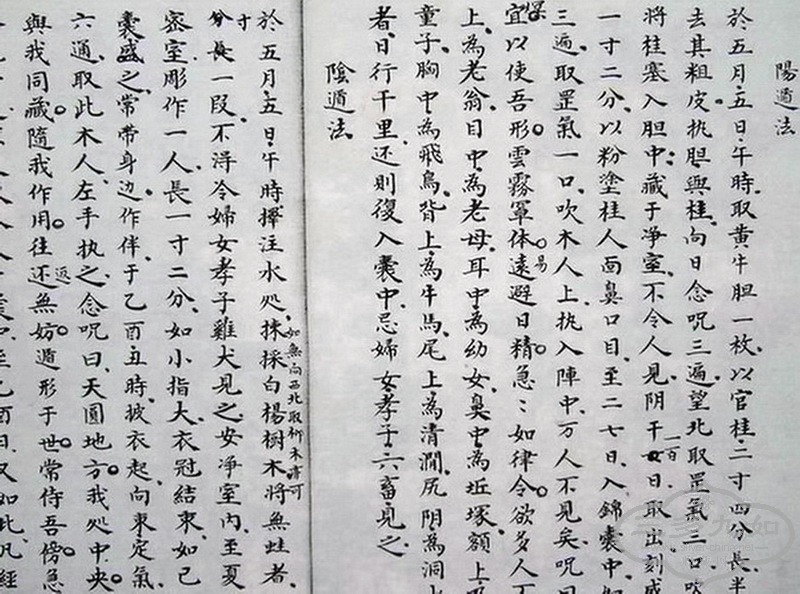 陽遁法
於五月五日午時取黃牛胆一枚以官桂二寸四分長半
去其粗皮执胆與桂向日念呪三遍望北取罡氣三口吹
將桂塞入胆中藏于净室不令人見阴干一百日取出刻成
一寸二分以粉塗桂人面鼻口目至二七日入錦囊中
三遍取罡氣一口吹木人上执入陣中万人不見矣呪曰
宜以使吾形雲霧罩体遠避日精急:如律令欲多人
上為老翁目中為老母耳中為幼女鼻中為坵塚額上
童子胸中為飛鳥背上為牛馬尾上為清澗尻阴為洞
者日行千里还則復入囊中忌婦女孝子六畜見之
陰遁法
於五月五日午時擇注水处抹採白楊樹木將無蛀者
如無向西北取柳木亦可
寸分長一段不浔令婦女孝子雞犬見之安净室内至夏
密室彫作一人長一寸二分如小指大衣冠結束如己
囊盛之常带身边作伴于乙酉丑時披衣起向東定氣
六通取此木人左手执之念呪曰天圓地方我处中央
與我同藏隨我作用往还無妨遁形于世常侍吾傍急